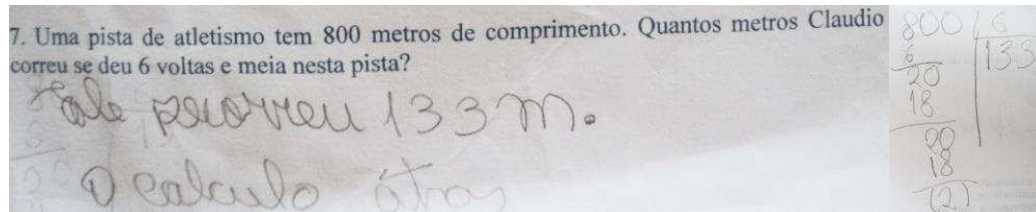 7. Uma pista de atletismo tem 800 metros de comprimento. Quantos metros Claudio
correu se deu 6 voltas e meia nesta pista?
percorreu 133 m.
O calculo átras
800 6
6 133
20
18
20
18
(2)